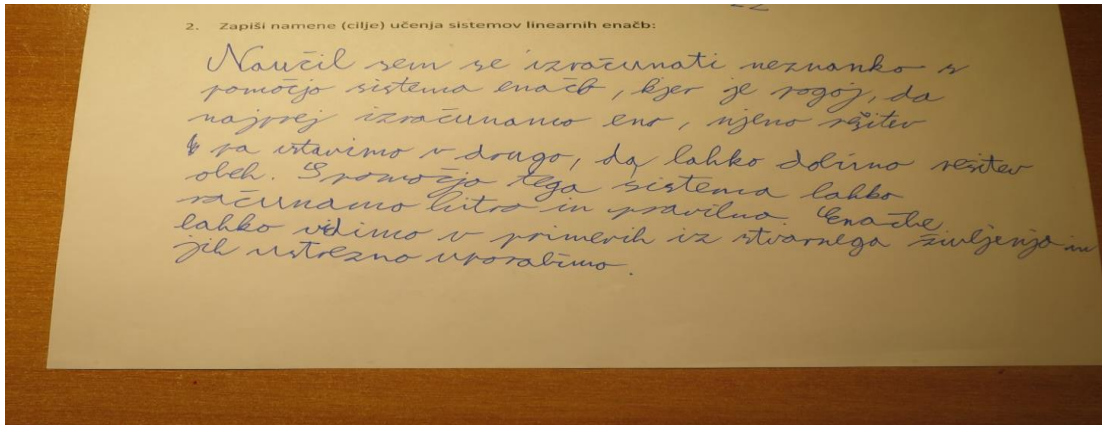 2. Zapiši namene (cilje) učenja sistemov linearnih enačb:
Naučil sem se izračunati neznanko s
pomočjo sistema enačb, kjer je pogoj, da
najprej izračunamo eno, njeno rešitev
pa vstavimo v drugo, da lahko dobimo rešitev
obeh. S pomočjo tega sistema lahko
računamo hitro in pravilno. Enačbe
lahko vidimo v primerih iz stvarnega življenja in
jih ustrezno uporabimo.